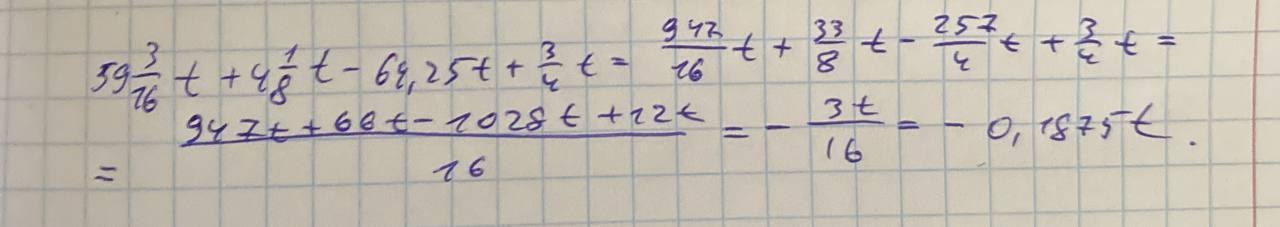 59 3/16 t + 4 1/8 t - 64,25t + 3/4 t = 947/16 t + 33/8 t - 257/4 t + 3/4 t =
= (947t + 66t - 1028t + 12t)/16 = - 3t/16 = - 0,1875t.